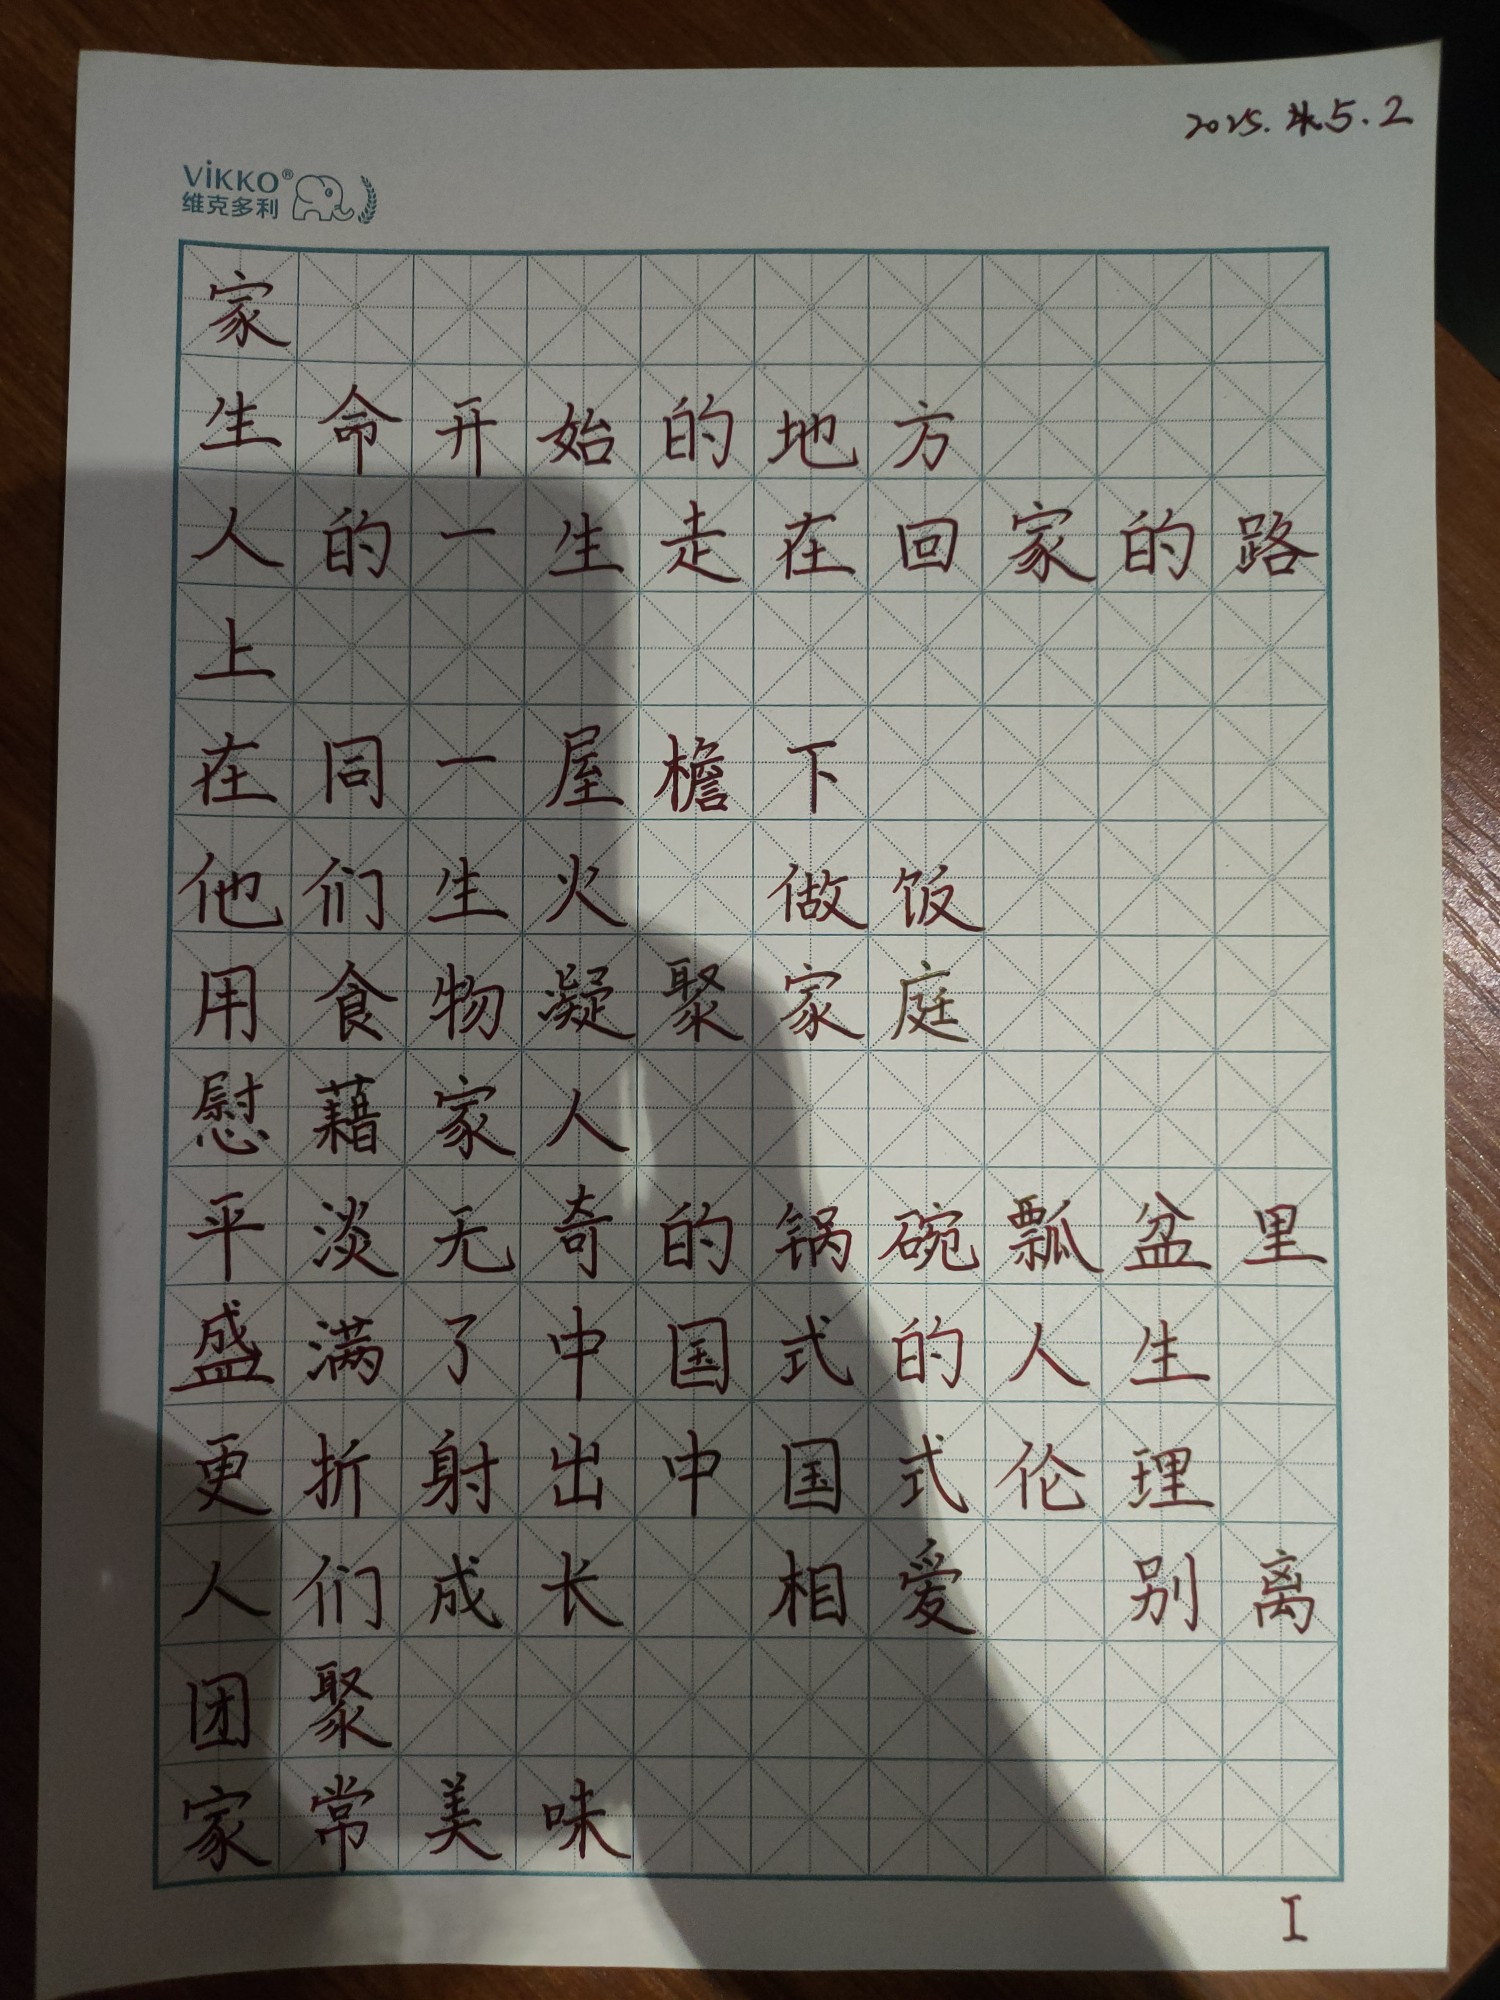 2025. 5.2
ViKKO®
维克多利
家
生命开始的地方
人的一生走在回家的路
上
在同一屋檐下
他们生火 做饭
用食物凝聚家庭
慰藉家人
平淡无奇的锅碗瓢盆里
盛满了中国式的人生
更折射出中国式伦理
人们成长 相爱 别离
团聚
家常美味
I